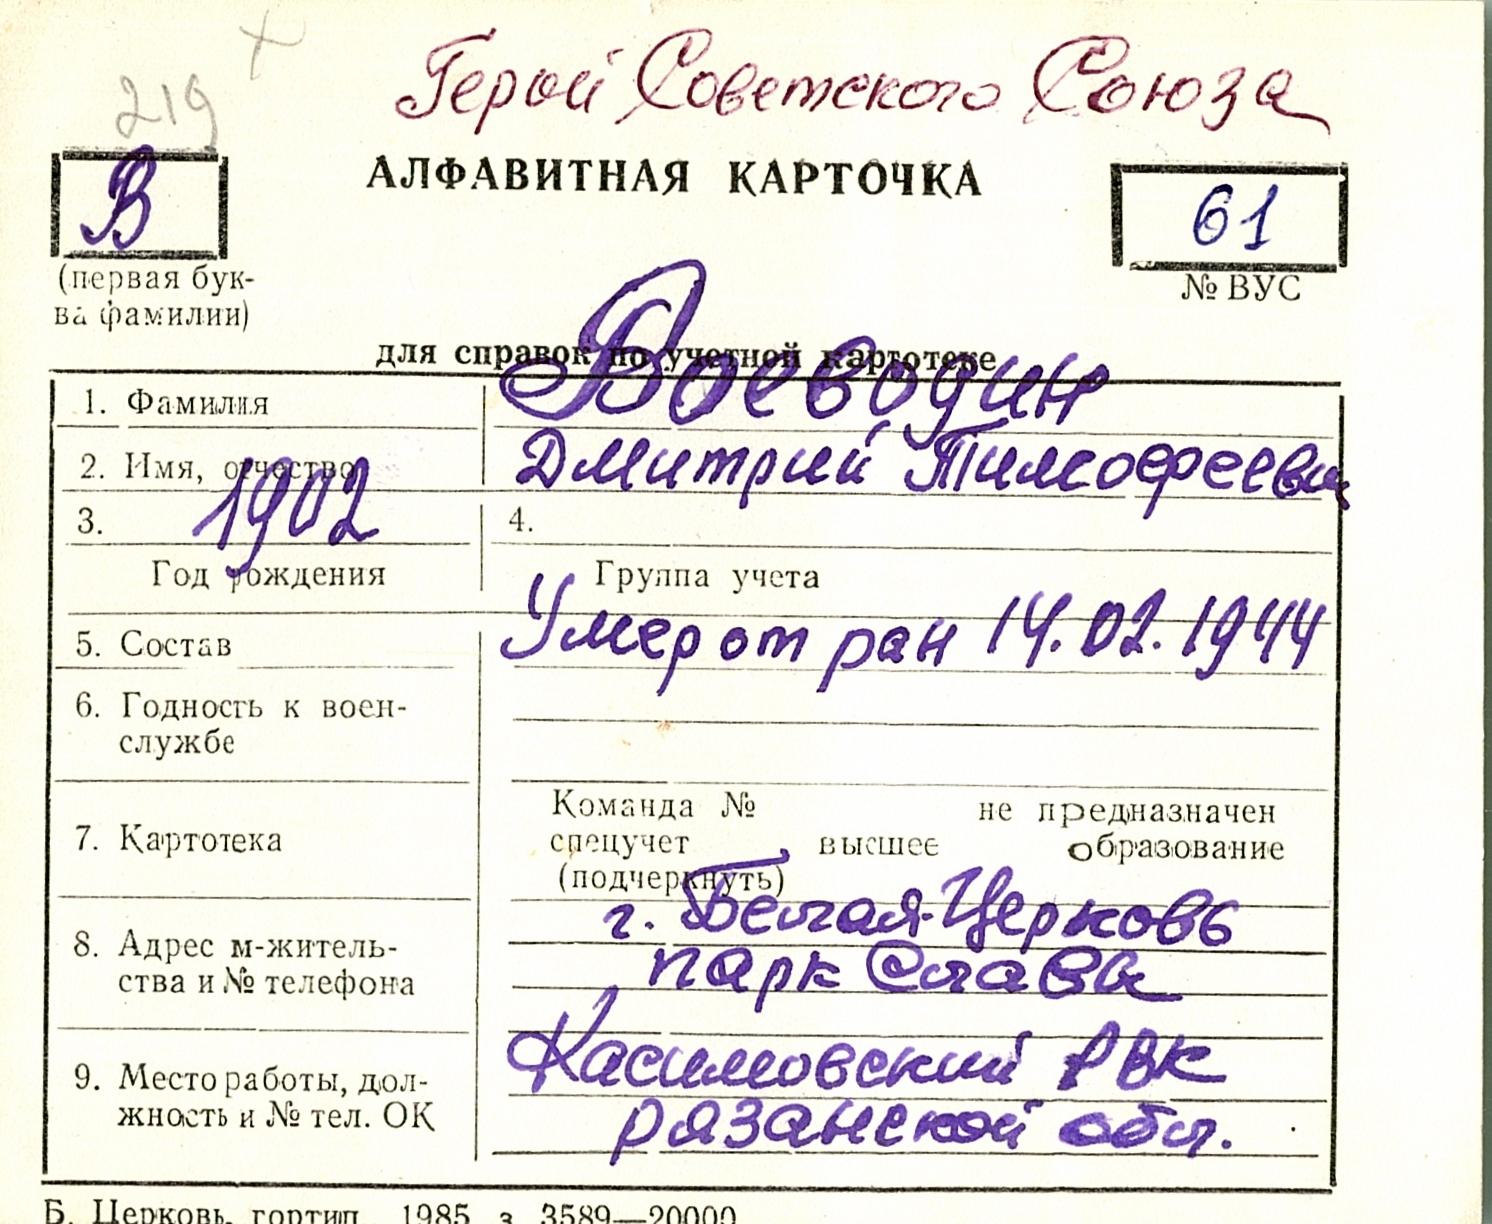 219
Герой Советского Союза
В
АЛФАВИТНАЯ КАРТОЧКА
61
(первая бук-
ва фамилии)
№ ВУС
для справок по учетной картотеке
1. Фамилия Воеводин
2. Имя, отчество Дмитрий Тимофеевич
3. 1902 4.
Год рождения Группа учета
5. Состав Умер от ран 14.02.1944
6. Годность к воен-
службе
Команда № не предназначен
7. Картотека спецучет высшее образование
(подчеркнуть)
г. Белая-Церковь
8. Адрес м-житель-
ства и № телефона парк Славы
Касимовский РВК
9. Место работы, дол-
жность и № тел. ОК рязанской обл.
Б. Церковь, гортип., 1985 з. 3589—20000